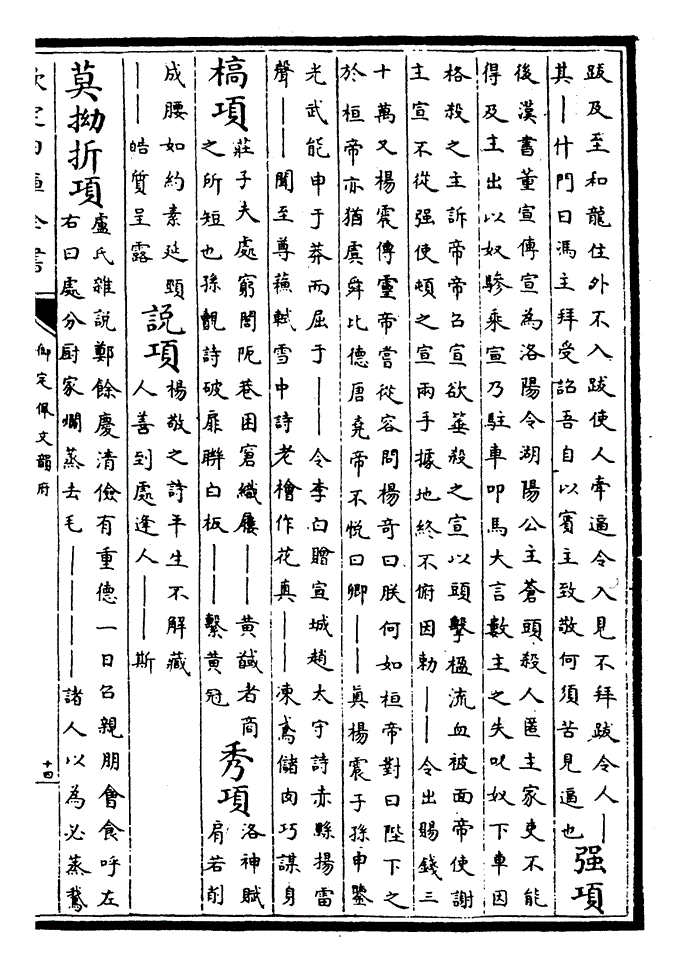 跋及至和龍住外不入跋使人牽逼令入見不拜跋令人—
其——什門曰馮主拜受詔吾自以賓主致敬何須苦見逼也
强項
後漢書董宣傳宣為洛陽令湖陽公主蒼頭殺人匿主家吏不能
得及主出以奴驂乘宣乃駐車叩馬大言數主之失叱奴下車因
格殺之主訴帝帝召宣欲箠殺之宣以頭擊楹流血被面帝使謝
主宣不從强使頓之宣兩手據地終不俯因勅——令出賜錢三
十萬又楊震傳靈帝嘗從容問楊奇曰朕何如桓帝對曰陛下之
於桓帝亦猶虞舜比德唐堯帝不悦曰卿——真楊震子孫申鑒
光武能申于莽而屈于——令李白贈宣城趙太守詩赤縣揚雷
聲——聞至尊蘇軾雪中詩老檜作花真——凍鳶儲肉巧謀身
槁項
莊子夫處窮閭阨巷困窘織屨——黄馘者商
之所短也孫覿詩破扉聯白板——繫黄冠
秀項
洛神賦
肩若削
成腰如約素延頸
——皓質呈露
説項
楊敬之詩平生不解藏
人善到處逢人——斯
莫拗折項
盧氏雜説鄭餘慶清儉有重德一日召親朋會食呼左
右曰處分厨家爛蒸去毛————諸人以為必蒸鵞
欽定四庫全書
御定佩文韻府
十四